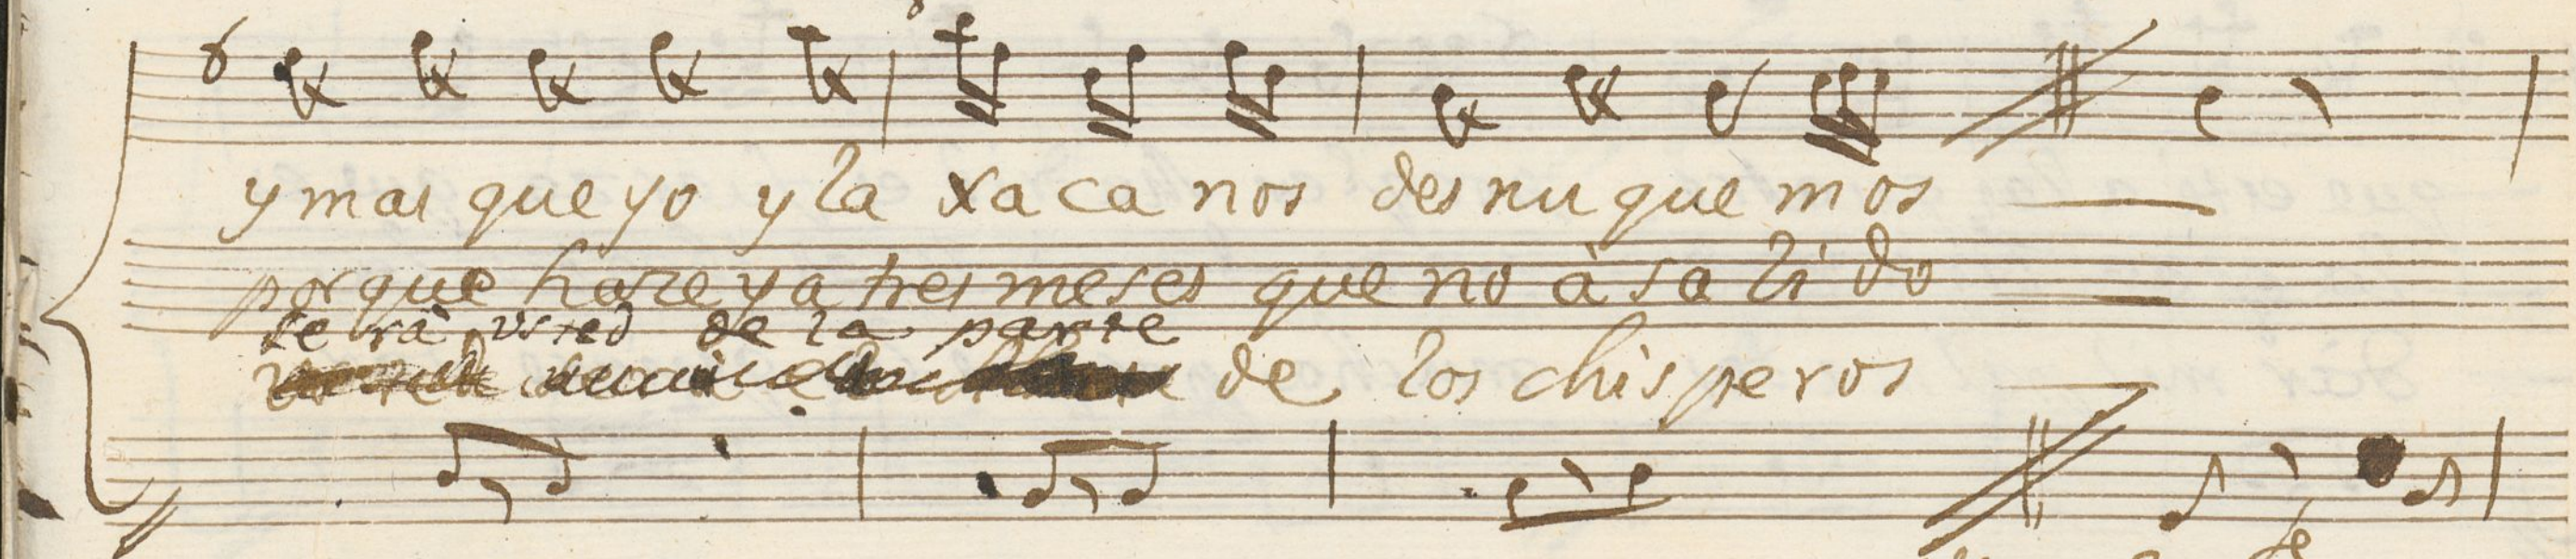 y mas que yo y la xa ca nos des nu que m os
por que haze ya tres meses que no à sa li do
se rà usted de la parte
de los chisperos